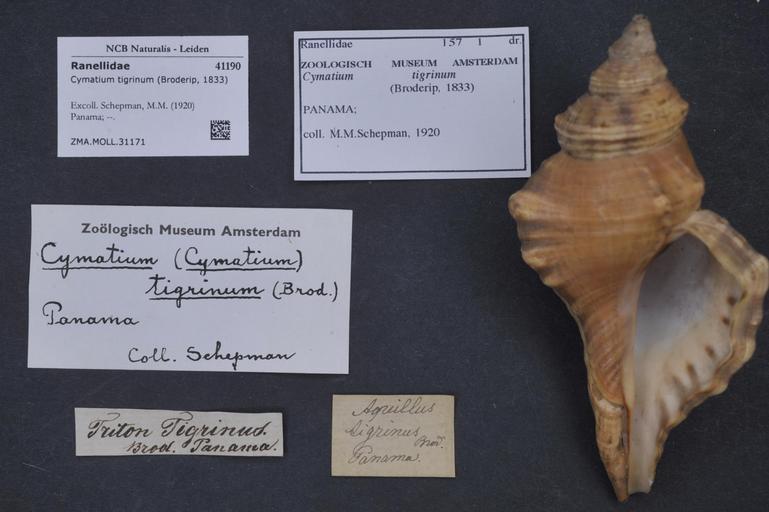 NCB Naturalis - Leiden
Ranellidae 41190
Cymatium tigrinum (Broderip, 1833)
Excoll. Schepman, M.M. (1920)
Panama; --.
ZMA.MOLL.31171
Ranellidae 157 1 dr.
ZOOLOGISCH MUSEUM AMSTERDAM
Cymatium tigrinum
(Broderip, 1833)
PANAMA;
coll. M.M.Schepman, 1920
Zoölogisch Museum Amsterdam
Cymatium (Cymatium)
tigrinum (Brod.)
Panama
Coll. Schepman
Triton Tigrinus.
Brod. Panama.
Aquillus
tigrinus Brod.
Panama.